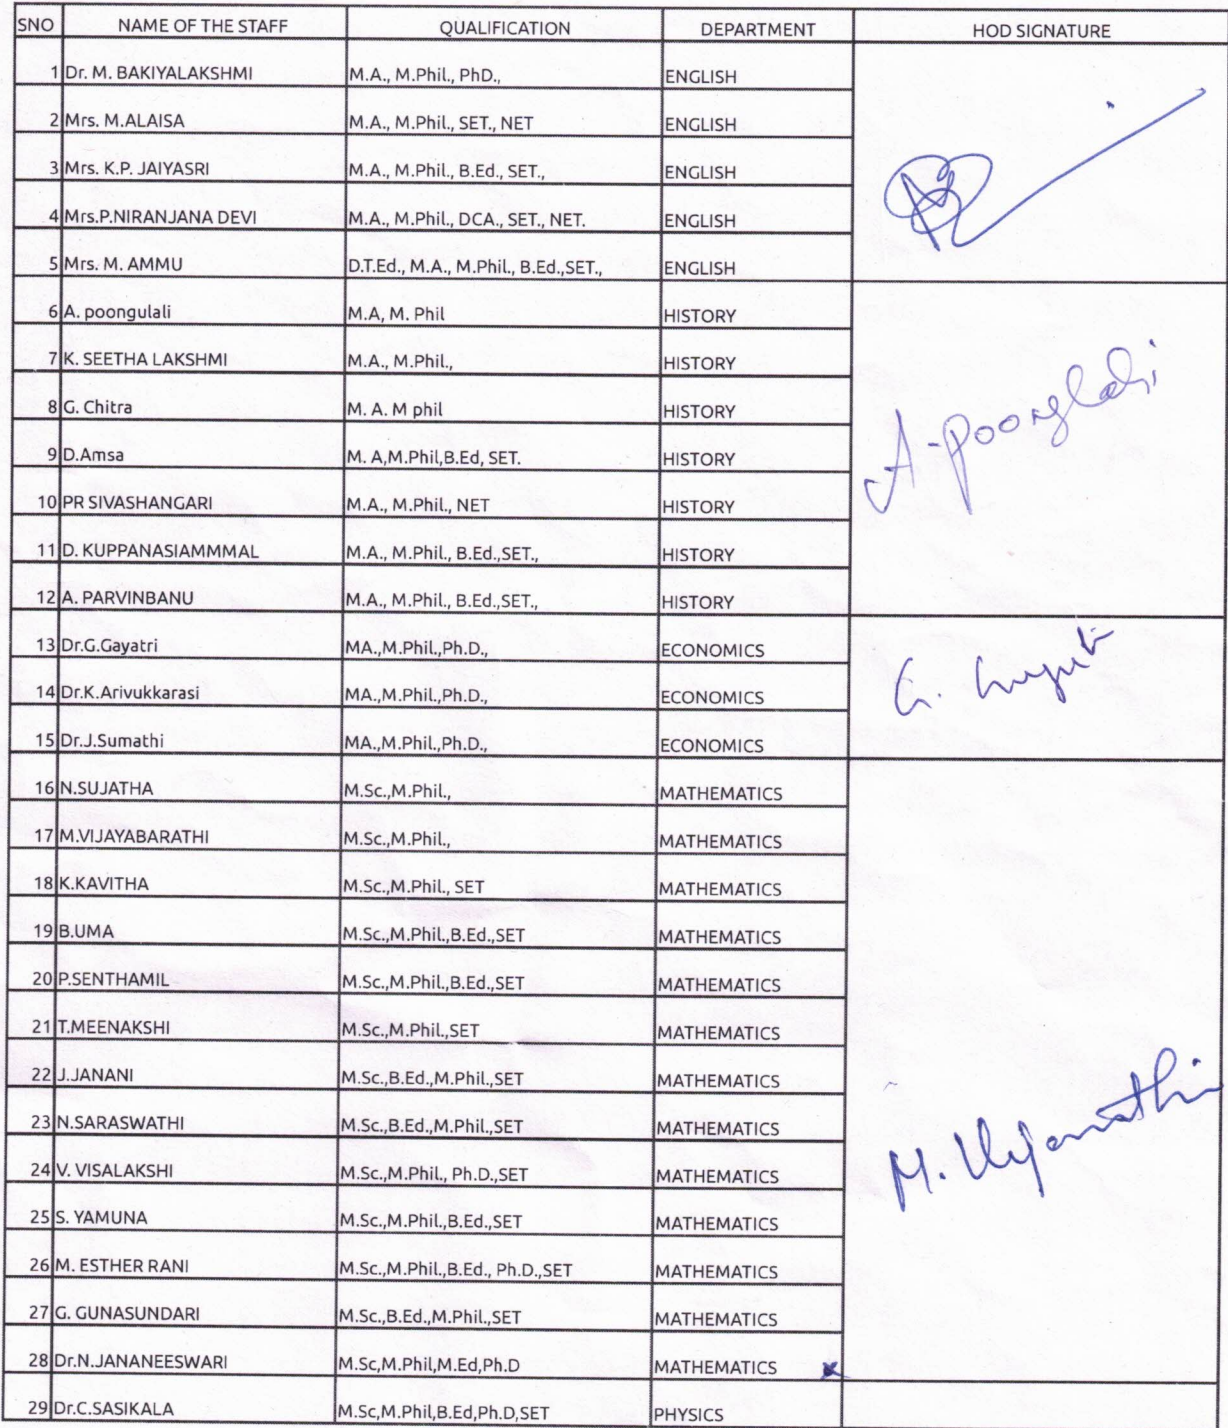 SNO NAME OF THE STAFF QUALIFICATION DEPARTMENT HOD SIGNATURE
1 Dr. M. BAKIYALAKSHMI M.A., M.Phil., PhD., ENGLISH
2 Mrs. M.ALAISA M.A., M.Phil., SET., NET ENGLISH
3 Mrs. K.P. JAIYASRI M.A., M.Phil., B.Ed., SET., ENGLISH
4 Mrs.P.NIRANJANA DEVI M.A., M.Phil., DCA., SET., NET. ENGLISH
5 Mrs. M. AMMU D.T.Ed., M.A., M.Phil., B.Ed.,SET., ENGLISH
6 A. poongulali M.A, M. Phil HISTORY
7 K. SEETHA LAKSHMI M.A., M.Phil., HISTORY
8 G. Chitra M. A. M phil HISTORY
9 D.Amsa M. A,M.Phil,B.Ed, SET. HISTORY
10 PR SIVASHANGARI M.A., M.Phil., NET HISTORY
11 D. KUPPANASIAMMMAL M.A., M.Phil., B.Ed.,SET., HISTORY
12 A. PARVINBANU M.A., M.Phil., B.Ed.,SET., HISTORY
13 Dr.G.Gayatri MA.,M.Phil.,Ph.D., ECONOMICS
14 Dr.K.Arivukkarasi MA.,M.Phil.,Ph.D., ECONOMICS
15 Dr.J.Sumathi MA.,M.Phil.,Ph.D., ECONOMICS
16 N.SUJATHA M.Sc.,M.Phil., MATHEMATICS
17 M.VIJAYABARATHI M.Sc.,M.Phil., MATHEMATICS
18 K.KAVITHA M.Sc.,M.Phil., SET MATHEMATICS
19 B.UMA M.Sc.,M.Phil.,B.Ed.,SET MATHEMATICS
20 P.SENTHAMIL M.Sc.,M.Phil.,B.Ed.,SET MATHEMATICS
21 T.MEENAKSHI M.Sc.,M.Phil.,SET MATHEMATICS
22 J.JANANI M.Sc.,B.Ed.,M.Phil.,SET MATHEMATICS
23 N.SARASWATHI M.Sc.,B.Ed.,M.Phil.,SET MATHEMATICS
24 V. VISALAKSHI M.Sc.,M.Phil., Ph.D.,SET MATHEMATICS
25 S. YAMUNA M.Sc.,M.Phil.,B.Ed.,SET MATHEMATICS
26 M. ESTHER RANI M.Sc.,M.Phil.,B.Ed., Ph.D.,SET MATHEMATICS
27 G. GUNASUNDARI M.Sc.,B.Ed.,M.Phil.,SET MATHEMATICS
28 Dr.N.JANANEESWARI M.Sc,M.Phil,M.Ed,Ph.D MATHEMATICS
29 Dr.C.SASIKALA M.Sc,M.Phil,B.Ed,Ph.D,SET PHYSICS